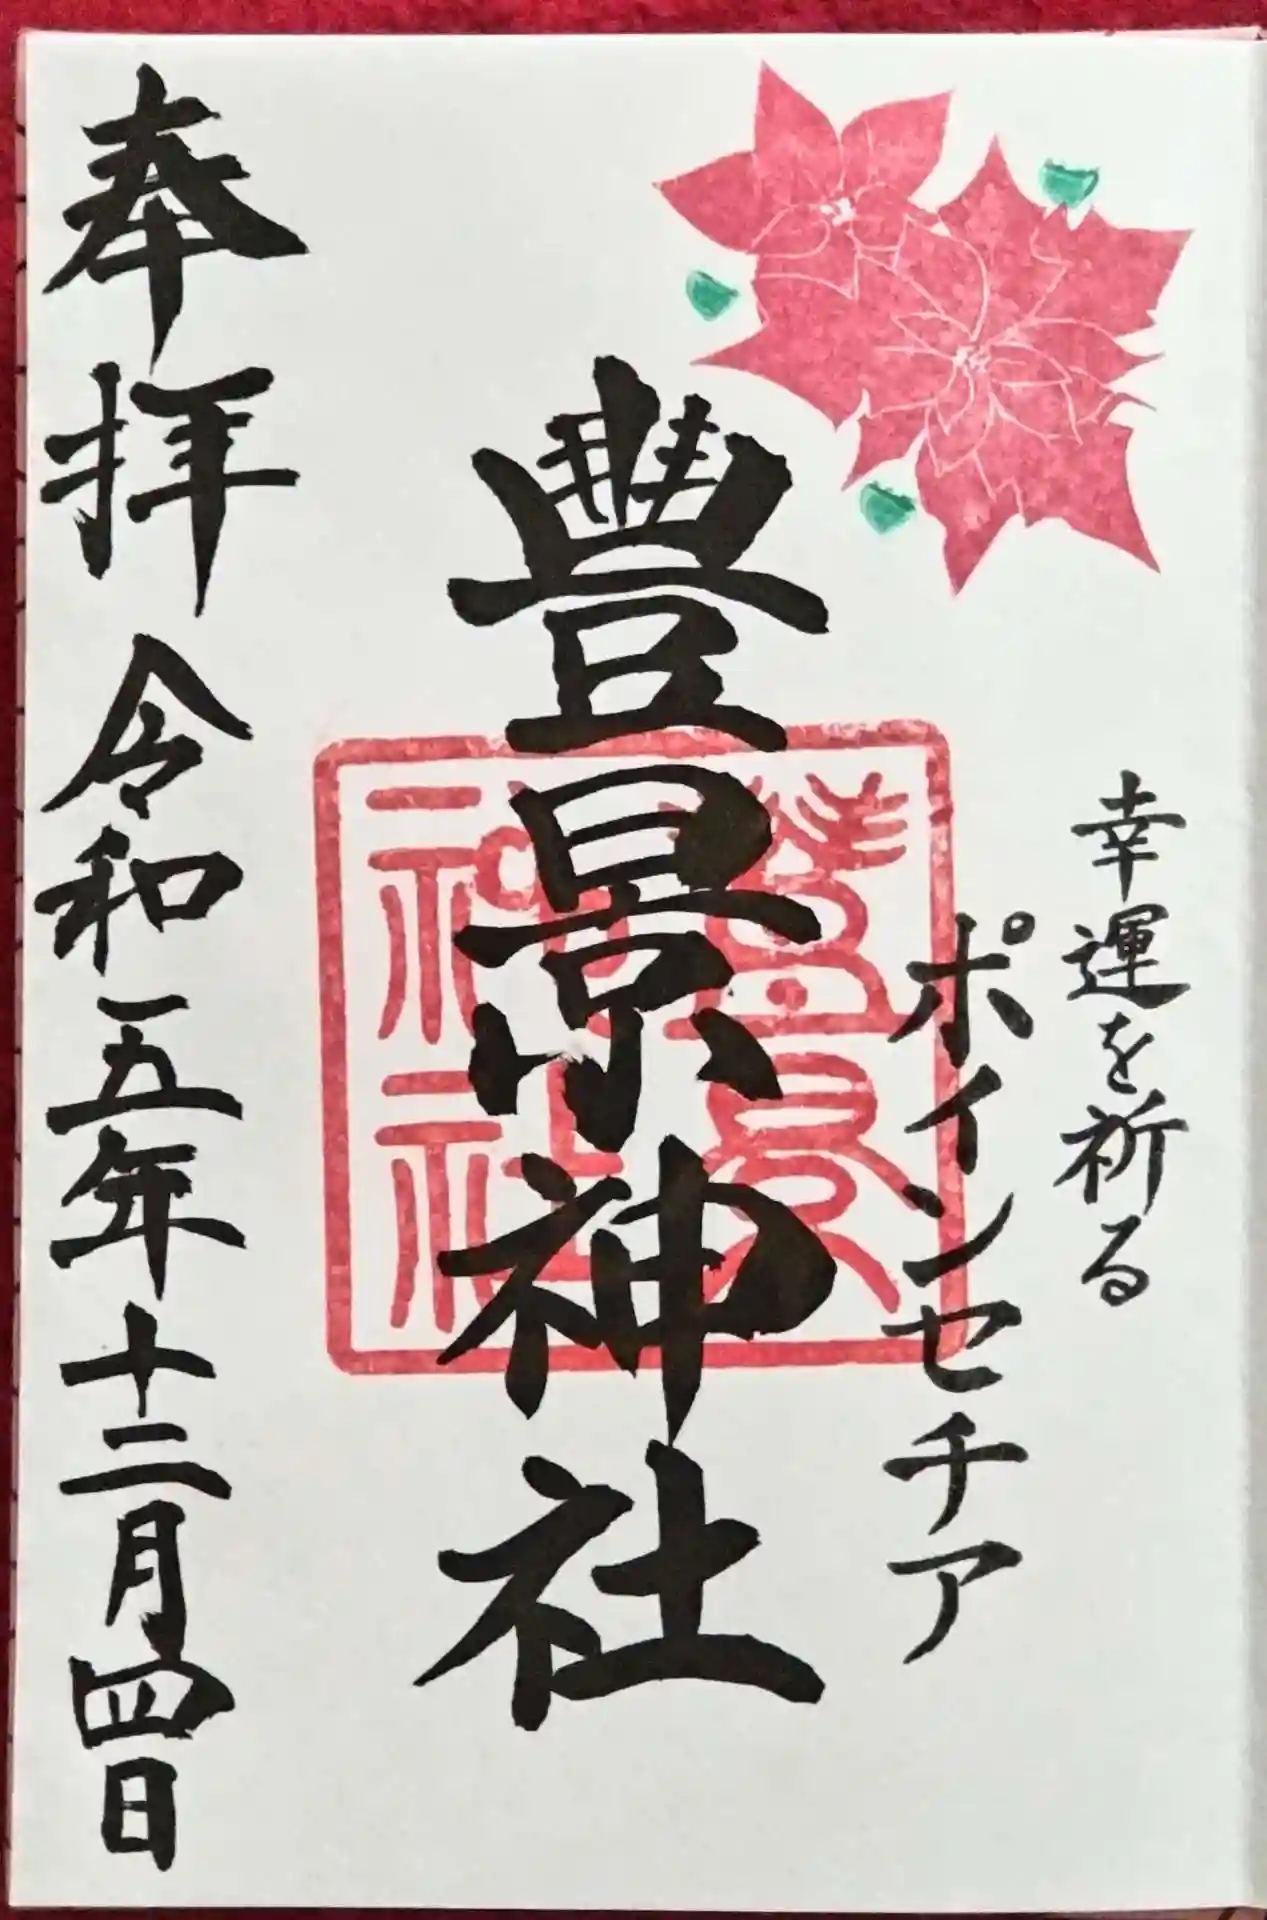 幸運を祈る
ポインセチア
豊景神社
豊景神社
奉拝 令和五年十二月四日